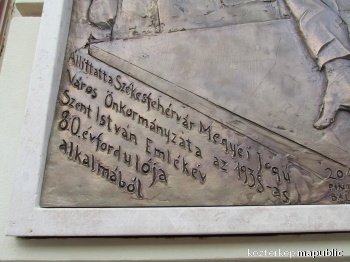 Állíttatta Székesfehérvár Megyei Jogú
Város Önkormányzata az 1938-as
Szent István Emlékév
80. évfordulója
alkalmából
kozterkep.mapublic